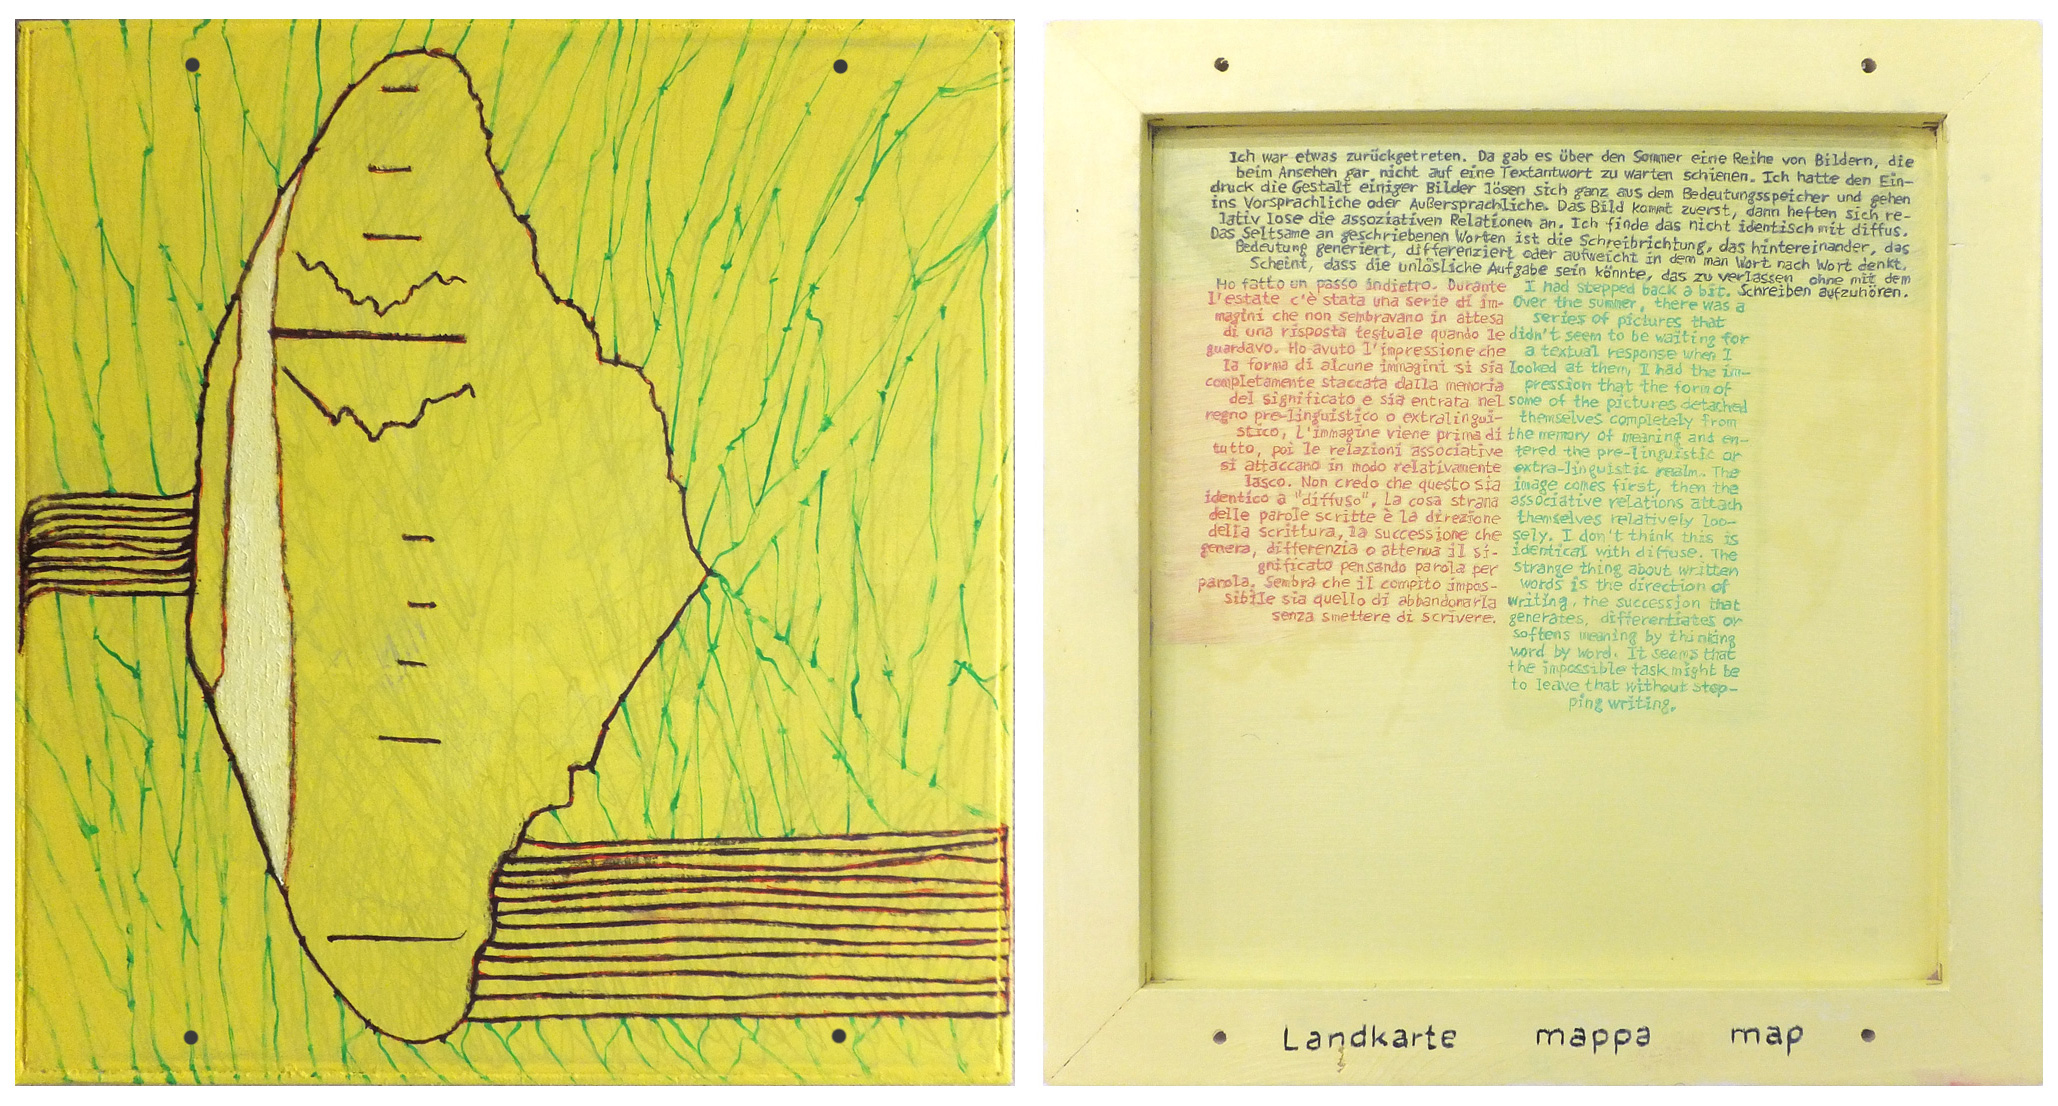 Ich war etwas zurückgetreten. Da gab es über den Sommer eine Reihe von Bildern, die
beim Ansehen gar nicht auf eine Textantwort zu warten schienen. Ich hatte den Ein-
druck die Gestalt einiger Bilder lösen sich ganz aus dem Bedeutungsspeicher und gehen
ins Vorsprachliche oder Außersprachliche. Das Bild kommt zuerst, dann heften sich re-
lativ lose die assoziativen Relationen an. Ich finde das nicht identisch mit diffus.
Das Seltsame an geschriebenen Worten ist die Schreibrichtung, das hintereinander, das
Bedeutung generiert, differenziert oder aufweicht in dem man Wort nach Wort denkt.
Scheint, dass die unlösliche Aufgabe sein könnte, das zu verlassen ohne mit dem
Schreiben aufzuhören.
Ho fatto un passo indietro. Durante
l'estate c'è stata una serie di im-
magini che non sembravano in attesa
di una risposta testuale quando le
guardavo. Ho avuto l'impressione che
la forma di alcune immagini si sia
completamente staccata dalla memoria
del significato e sia entrata nel
regno pre-linguistico o extralingui-
stico, l'immagine viene prima di
tutto, poi le relazioni associative
si attaccano in modo relativamente
lasco. Non credo che questo sia
identico a "diffuso". La cosa strana
delle parole scritte è la direzione
della scrittura, la successione che
genera, differenzia o attenua il si-
gnificato pensando parola per
parola. Sembra che il compito impos-
sibile sia quello di abbandonarla
senza smettere di scrivere.
I had stepped back a bit.
Over the summer, there was a
series of pictures that
didn't seem to be waiting for
a textual response when I
looked at them, I had the im-
pression that the form of
some of the pictures detached
themselves completely from
the memory of meaning and en-
tered the pre-linguistic or
extra-linguistic realm. The
image comes first, then the
associative relations attach
themselves relatively loo-
sely. I don't think this is
identical with diffuse. The
strange thing about written
words is the direction of
writing, the succession that
generates, differentiates or
softens meaning by thinking
word by word. It seems that
the impossible task might be
to leave that without stop-
ping writing.
Landkarte mappa map